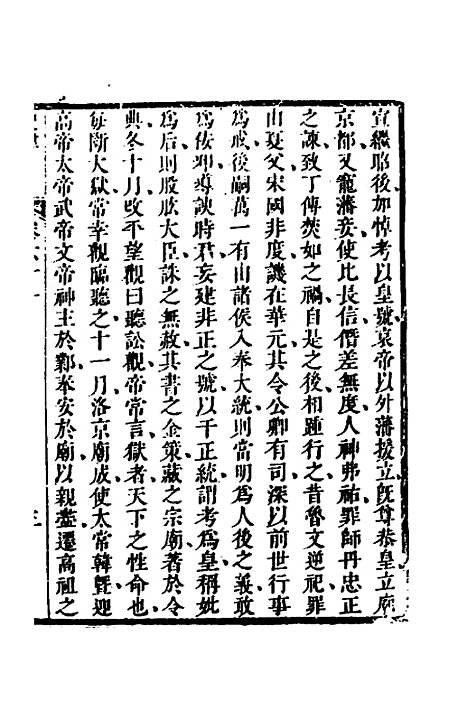 宣繼昭後加悼考以皇號哀帝以外藩援立旣尊恭皇立廟
京都又寵藩妾使比長信僭差無度人神弗祐罪師丹忠正
之諫致丁傅焚如之禍自是之後相踵行之昔魯文逆祀罪
由夏父宋國非度譏在華元其令公卿有司深以前世行事
爲戒後嗣萬一有由諸侯入奉大統則當明爲人後之義敢
爲佞邪導諛時君妄建非正之號以干正統謂考爲皇稱妣
爲后則股肱大臣誅之無赦其書之金策藏之宗廟著於令
典冬十月改平望觀曰聽訟觀帝常言獄者天下之性命也
每斷大獄常幸觀臨聽之十一月洛京廟成使太常韓曁迎
高帝太帝武帝文帝神主於鄴奉安於廟以親盡遷高祖之